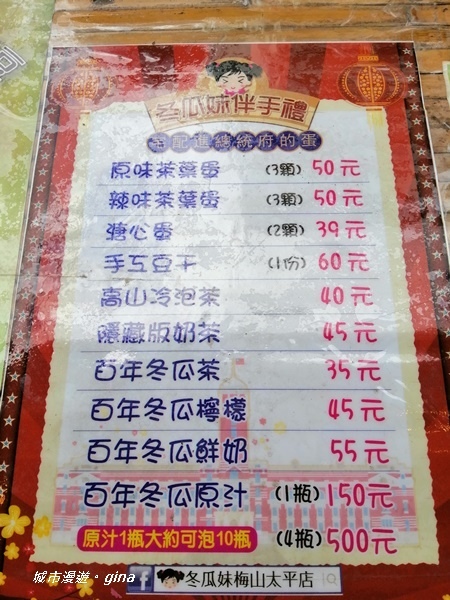 冬瓜妹伴手禮
宅配進總統府的蛋
原味茶葉蛋 (3顆) 50元
辣味茶葉蛋 (3顆) 50元
溏心蛋 (2顆) 39元
手工豆干 (1份) 60元
高山冷泡茶 40元
隱藏版奶茶 45元
百年冬瓜茶 35元
百年冬瓜檸檬 45元
百年冬瓜鮮奶 55元
百年冬瓜原汁 (1瓶) 150元
原汁1瓶大約可泡10瓶 (4瓶) 500元
冬瓜妹梅山太平店
城市漫遊。gina